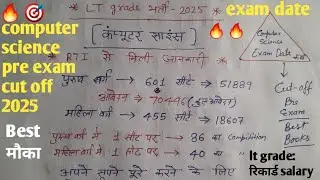 * LT grade भर्ती - 2025 *
exam date
computer science pre exam cut off 2025
[कंप्यूटर साइंस]
* RTI से मिली जानकारी *
पुरुष वर्ग → 601 सीटें → 51889
आवेदन → 70496 (कुल आवेदन)
महिला वर्ग → 455 सीटें → 18607
पुरुष वर्ग में 1 सीट पर → 86 का Competition
महिला वर्ग में 1 सीट पर → 40 का "
अपने सपने पूरे करने के लिए
Best मौका
Computer Science Exam Date
Cut-off
Pre Exam
Best Books
lt grade: रिकार्ड salary